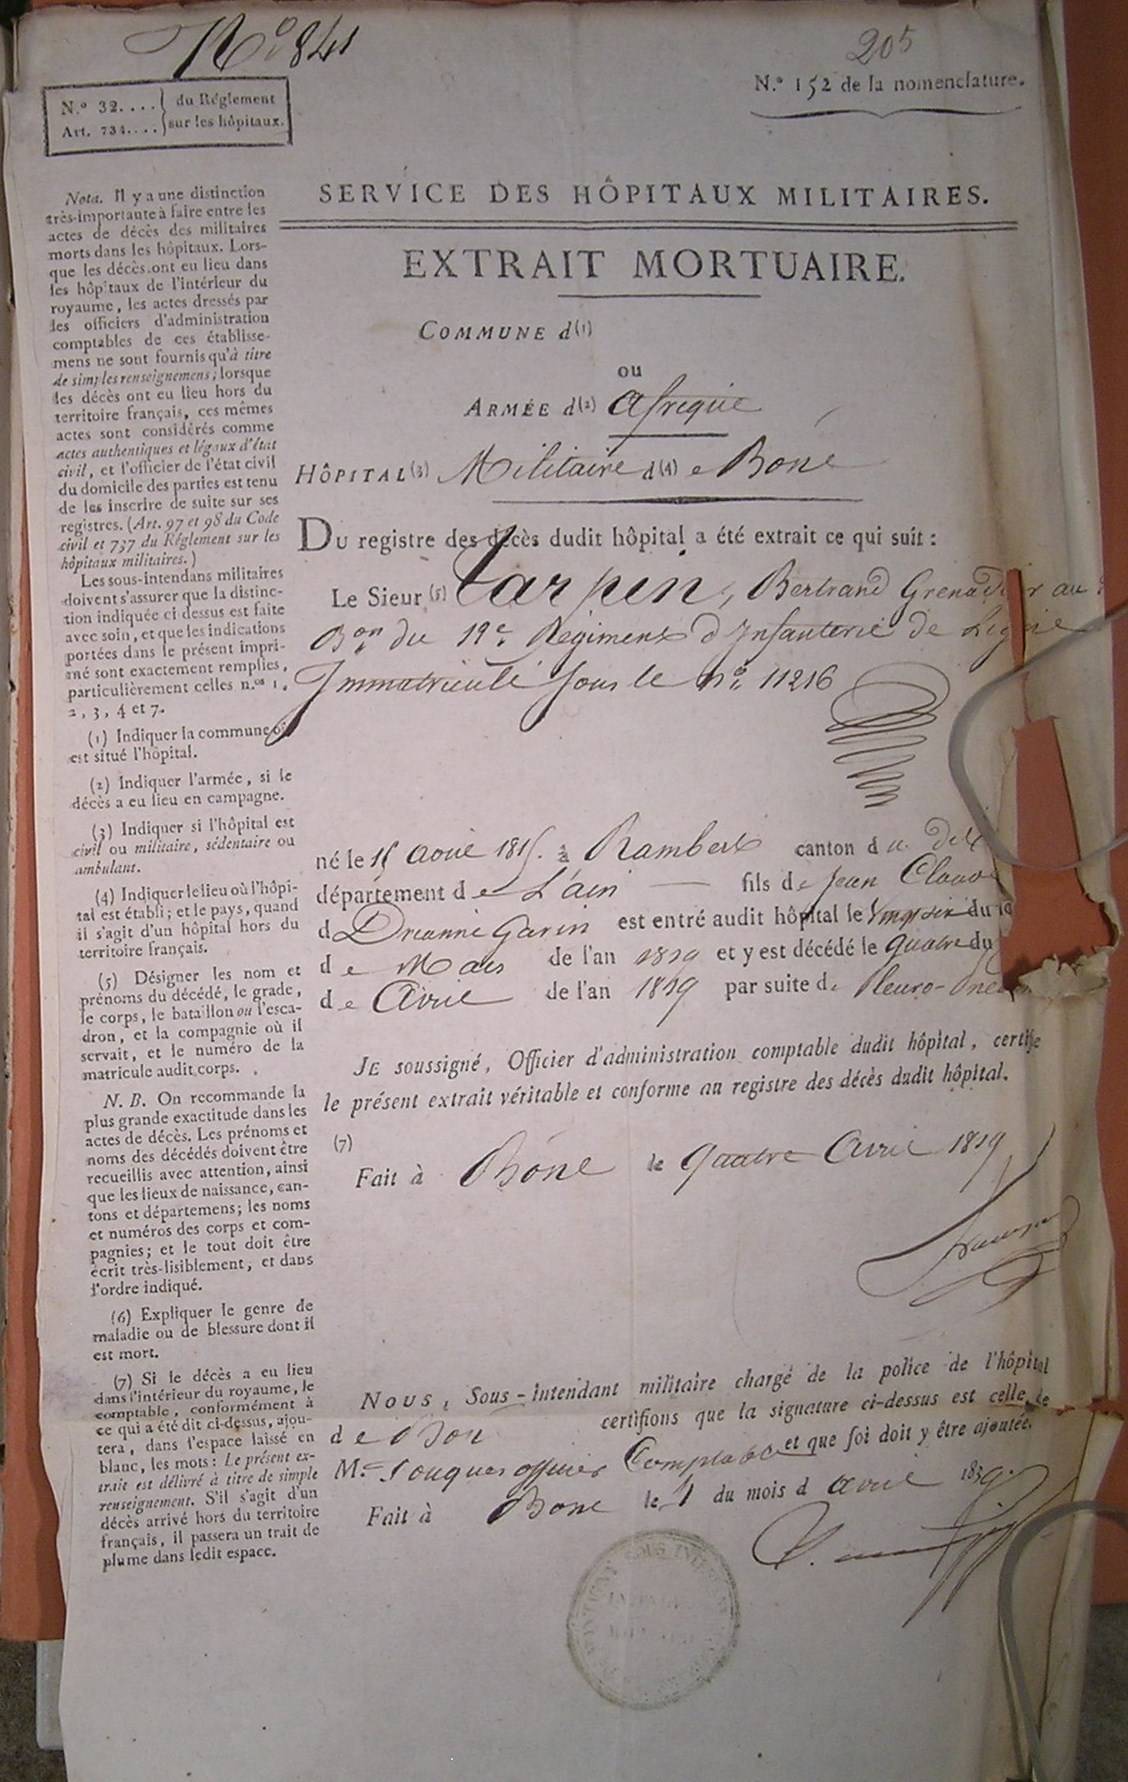 N.o 841
205
N.o 32.... du Réglement
Art. 734.... sur les hôpitaux.
N.o 152 de la nomenclature.
Nota. Il y a une distinction
très-importante à faire entre les
actes de décès des militaires
morts dans les hôpitaux. Lors-
que les décès ont eu lieu dans
les hôpitaux de l'intérieur du
royaume, les actes dressés par
les officiers d'administration
comptables de ces établisse-
mens ne sont fournis qu'à titre
de simples renseignemens; lorsque
les décès ont eu lieu hors du
territoire français, ces mêmes
actes sont considérés comme
actes authentiques et légaux d'état
civil, et l'officier de l'état civil
du domicile des parties est tenu
de les inscrire de suite sur ses
registres. (Art. 97 et 98 du Code
civil et 737 du Réglement sur les
hôpitaux militaires.)
Les sous-intendans militaires
doivent s'assurer que la distinc-
tion indiquée ci-dessus est faite
avec soin, et que les indications
portées dans le présent impri-
mé sont exactement remplies,
particulièrement celles n.os 1,
2, 3, 4 et 7.
(1) Indiquer la commune où
est situé l'hôpital.
(2) Indiquer l'armée, si le
décès a eu lieu en campagne.
(3) Indiquer si l'hôpital est
civil ou militaire, sédentaire ou
ambulant.
(4) Indiquer le lieu où l'hôpi-
tal est établi; et le pays, quand
il s'agit d'un hôpital hors du
territoire français.
(5) Désigner les nom et
prénoms du décédé, le grade,
le corps, le bataillon ou l'esca-
dron, et la compagnie où il
servait, et le numéro de la
matricule audit corps.
N. B. On recommande la
plus grande exactitude dans les
actes de décès. Les prénoms et
noms des décédés doivent être
recueillis avec attention, ainsi
que les lieux de naissance, can-
tons et départemens; les noms
et numéros des corps et com-
pagnies; et le tout doit être
écrit très-lisiblement, et dans
l'ordre indiqué.
(6) Expliquer le genre de
maladie ou de blessure dont il
est mort.
(7) Si le décès a eu lieu
dans l'intérieur du royaume, le
comptable, conformément à
ce qui a été dit ci-dessus, ajou-
tera, dans l'espace laissé en
blanc, les mots: Le présent ex-
trait est délivré à titre de simple
renseignement. S'il s'agit d'un
décès arrivé hors du territoire
français, il passera un trait de
plume dans ledit espace.
SERVICE DES HÔPITAUX MILITAIRES.
EXTRAIT MORTUAIRE.
COMMUNE d(1)
ou
ARMÉE d(2) afrique
HÔPITAL(3) Militaire d(4) e Bone
Du registre des décès dudit hôpital a été extrait ce qui suit:
Le Sieur (5) Tarpin, Bertrand Grenadier au
Bon du 12e Regiment d'Infanterie de Ligne
Immatriculé sous le no 11216
né le 15 aout 1815. à Rambert canton du dit
département de L'ain fils de Jean Claude
d garin est entré audit hôpital le du
de Mars de l'an 1839 et y est décédé le quatre du
de avril de l'an 1839 par suite de Pleuro-
JE soussigné, Officier d'administration comptable dudit hôpital, certifie
le présent extrait véritable et conforme au registre des décès dudit hôpital.
(7)
Fait à Bone le quatre avril 1839
NOUS, Sous-Intendant militaire chargé de la police de l'hôpital
de Bone certifions que la signature ci-dessus est celle de
M.r officier Comptable et que foi doit y être ajoutée.
Fait à Bone le 4 du mois d avril 1839.